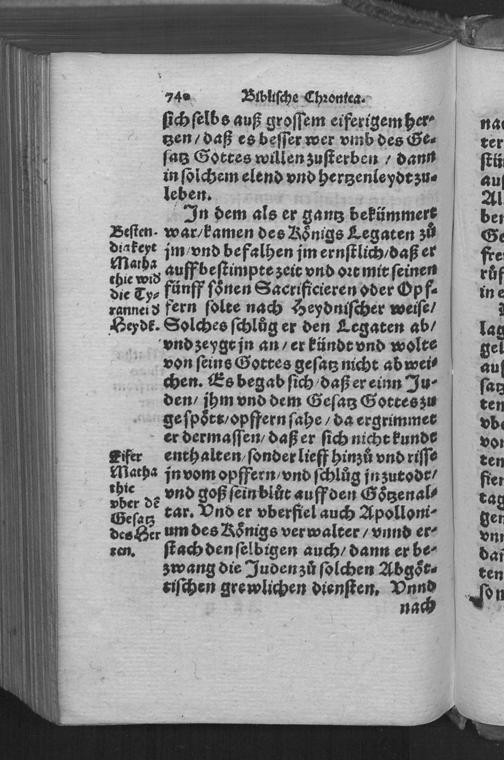 740 Biblische Chronica.
sich selbs auß grossem eiferigem her-
tzen / daß es besser wer vmb des Ge-
satz Gottes willen zusterben / dann
in solchem elend vnd hertzenleydt zu-
leben.
In dem als er gantz bekümmert
war / kamen des Königs Legaten zů
jm / vnd befalhen jm ernstlich / daß er
auff bestimpte zeit vnd ort mit seinen
fünff sönen Sacrificieren oder Opf-
fern solte nach Heydnischer weise /
Solches schlůg er den Legaten ab /
vnd zeygt jn an / er kündt vnd wolte
von seins Gottes gesatz nicht abwei-
chen. Es begab sich / daß er einn Ju-
den / jhm vnd dem Gesatz Gottes zu
gespött / opffern sahe / da ergrimmet
er dermassen / daß er sich nicht kundt
enthalten / sonder lieff hinzů vnd risse
jn vom opffern / vnd schlůg jn zu todt /
vnd goß sein blůt auff den Götzenal-
tar. Vnd er vberfiel auch Apolloni-
um des Königs verwalter / vnnd er-
stach denselbigen auch / dann er be-
zwang die Juden zů solchen Abgöt-
tischen grewlichen diensten. Vnnd
nach
Besten-
digkeyt
Matha
thie wid
die Ty-
rannei d
Heydē.
Eifer
Matha
thie
vber dē
Gesatz
des Her
ren.